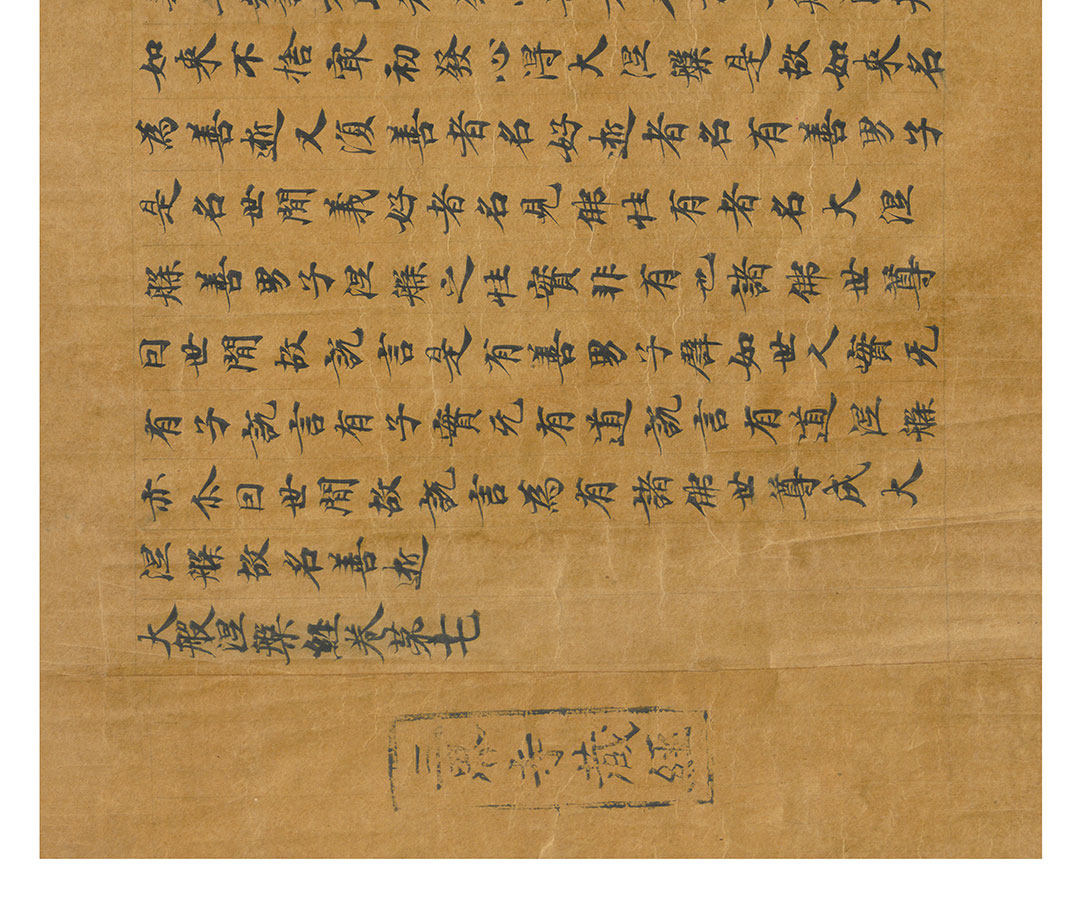 如來不捨冣初發心得大涅槃是故如來名
為善逝又湏善者名好逝者名有善男子
是名世間義好者名見佛性有者名大涅
槃善男子涅槃之性實非有也諸佛世尊
因世間故說言是有善男子譬如世人實无
有子說言有子實无有道說言有道涅槃
亦尒因世間故說言為有諸佛世尊成大
涅槃故名善逝
大般涅槃經卷苐七
三界寺藏經